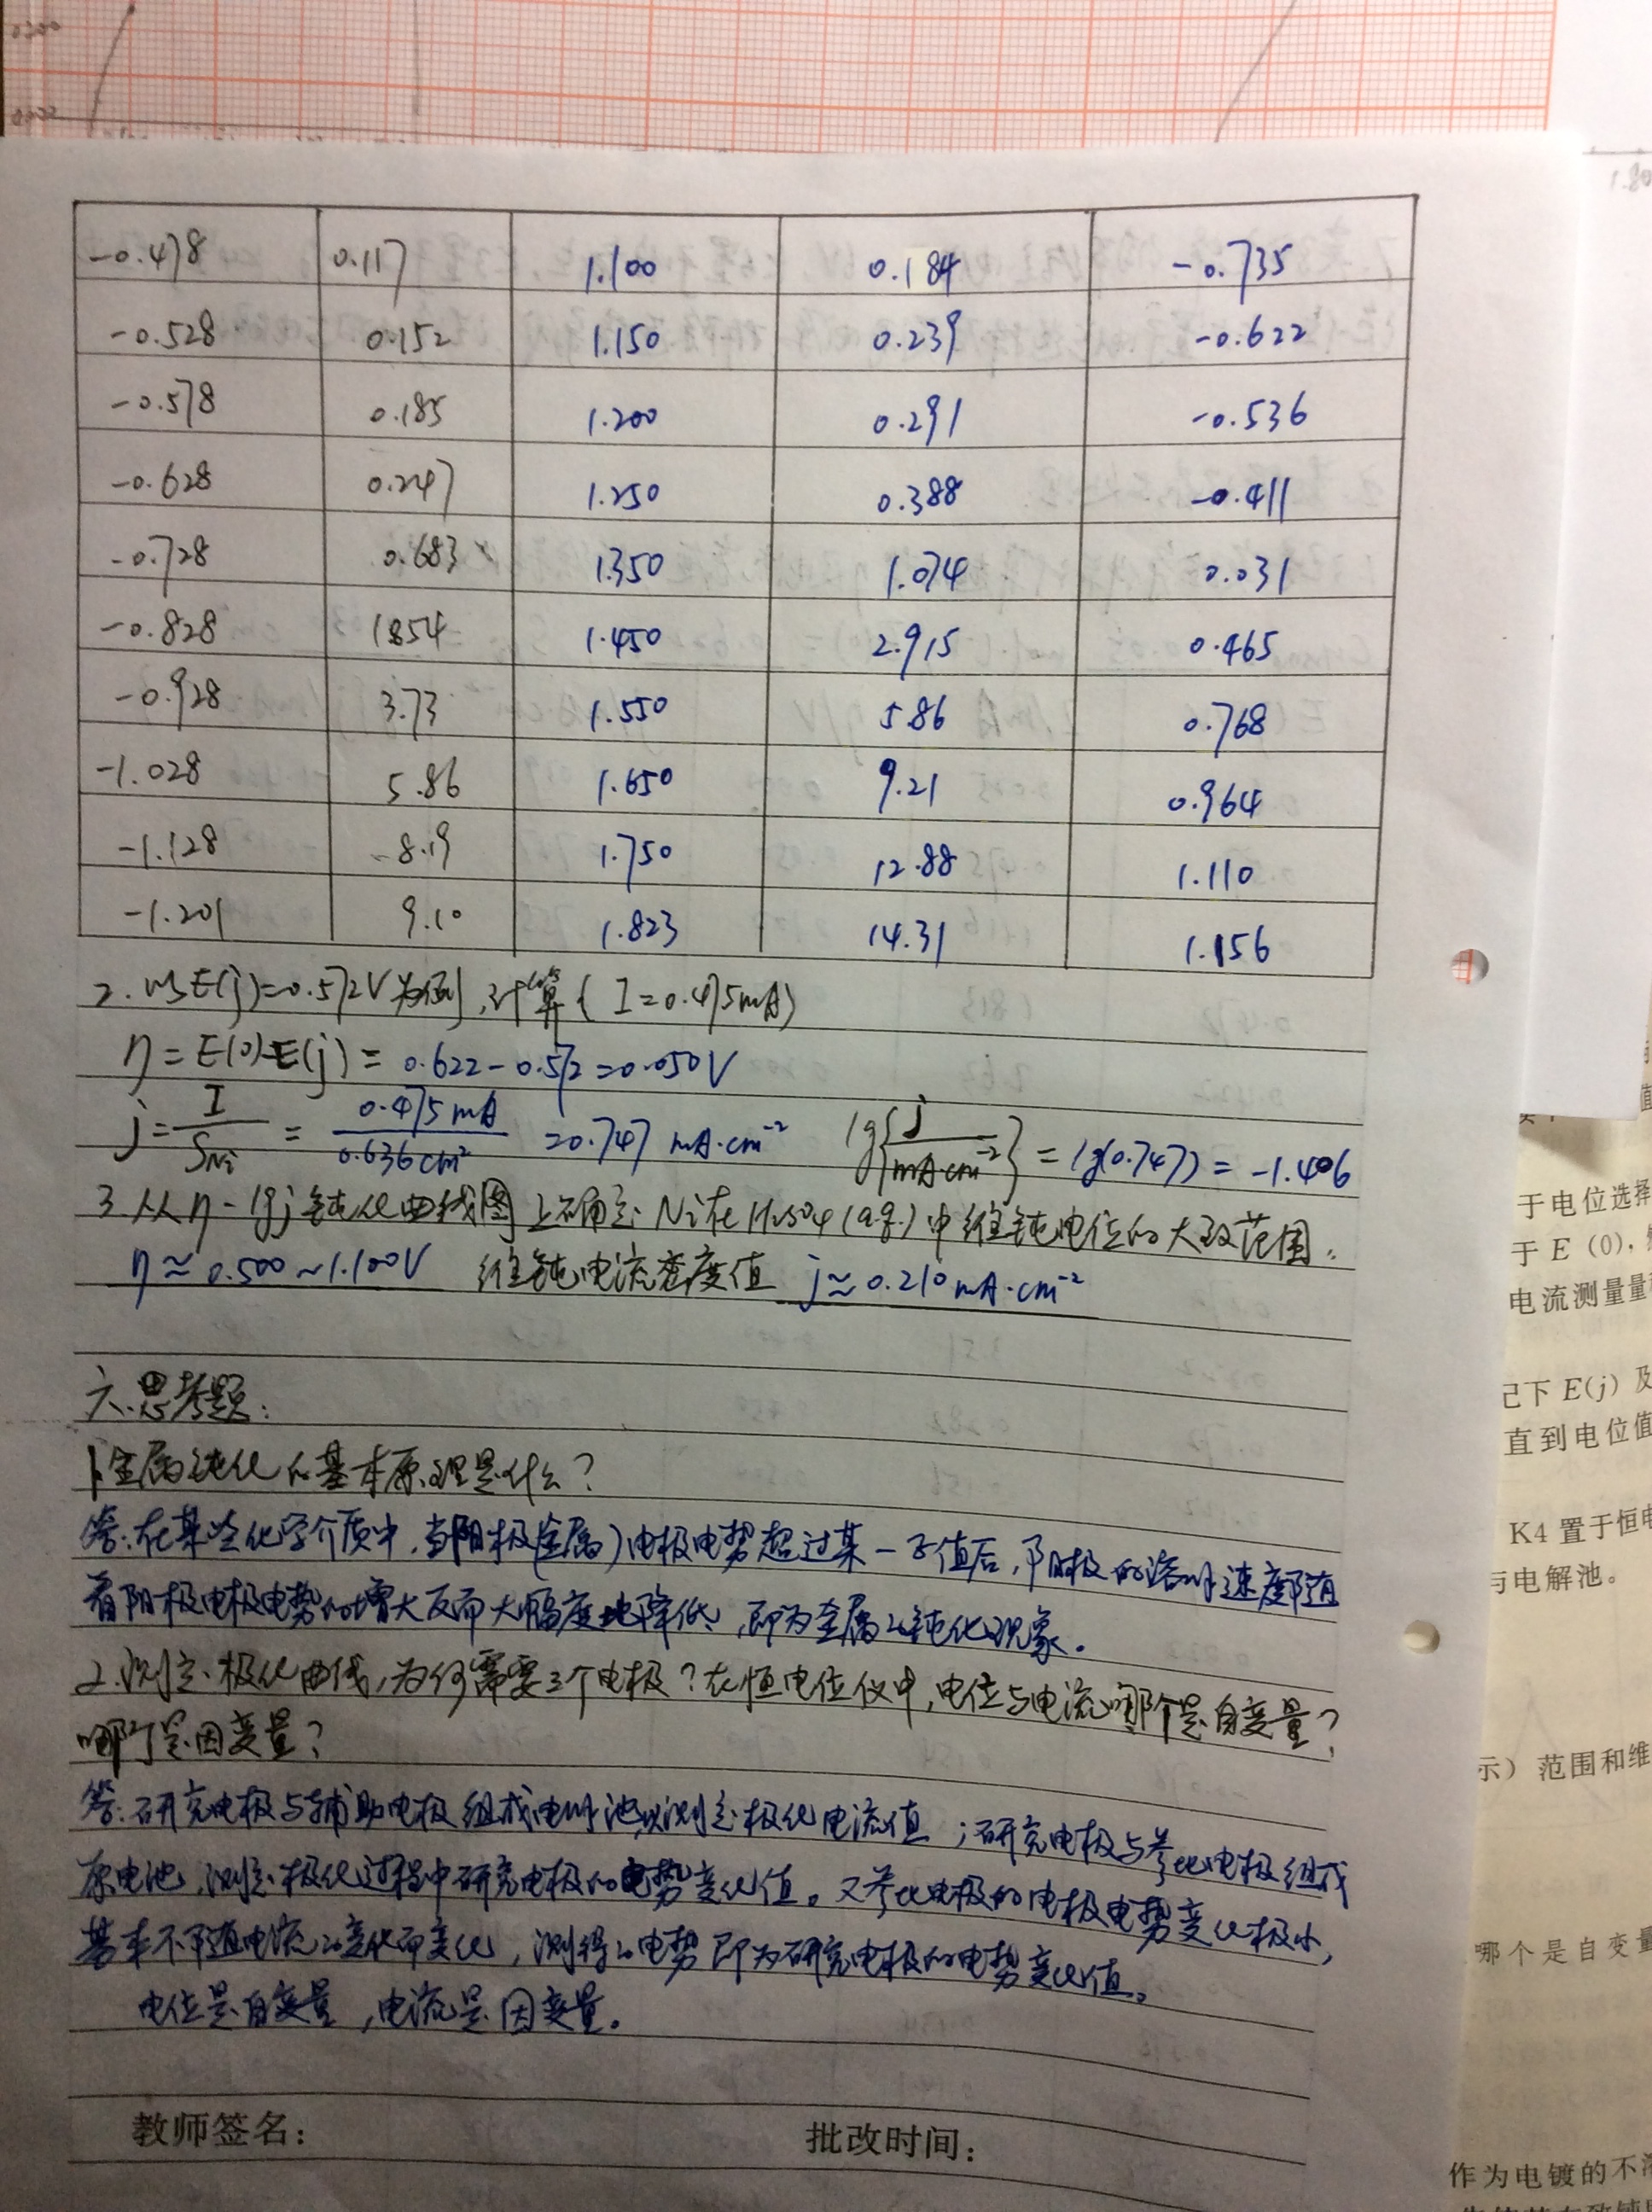 -0.478 0.117 1.100 0.184 -0.735
-0.528 0.152 1.150 0.239 -0.622
-0.578 0.185 1.200 0.291 -0.536
-0.628 0.247 1.250 0.388 -0.411
-0.728 0.683 1.350 1.074 0.031
-0.828 1.854 1.450 2.915 0.465
-0.928 3.73 1.550 5.86 0.768
-1.028 5.86 1.650 9.21 0.964
-1.128 8.19 1.750 12.88 1.110
-1.201 9.10 1.823 14.31 1.156
2. 以E(j)=0.572V为例,计算(I=0.475mA)
η=E(0)-E(j)=0.622-0.572=0.050V
j=I/S_Ni=0.475mA/0.636cm²=0.747 mA·cm⁻² lg{j/mA·cm⁻²}=lg(0.747)=-1.406
3.从η-lgj钝化曲线图上确定Ni在H₂SO₄(aq.)中维钝电位的大致范围:
η≈0.500~1.100V 维钝电流密度值 j≈0.210mA·cm⁻²
六.思考题:
1.金属钝化的基本原理是什么?
答:在某些化学介质中,当阳极(金属)电极电势超过某一正值后,阳极的溶解速度随
着阳极电极电势的增大反而大幅度地降低,即为金属的钝化现象。
2.测定极化曲线,为何需要三个电极?在恒电位仪中,电位与电流哪个是自变量?
哪个是因变量?
答:研究电极与辅助电极组成电解池以测定极化电流值;研究电极与参比电极组成
原电池,测定极化过程中研究电极的电势变化值。又参比电极的电极电势变化极小,
基本不随电流的变化而变化,测得的电势即为研究电极的电势变化值。
电位是自变量,电流是因变量。
教师签名: 批改时间:
1.80
于电位选择
于E(0),
电流测量量
己下E(j)及
直到电位值
K4置于恒电
与电解池。
示)范围和维
哪个是自变量
作为电镀的不